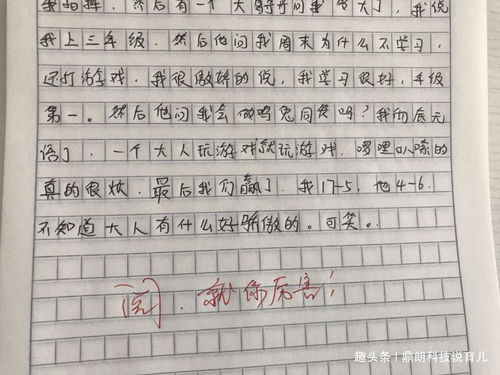 然后有一个大哥哥问我多大了，我说
我上三年级．然后他问我周末为什么不学习，
还打游戏．我很傲娇的说，我学习很好，年级
第一。然后他问我会做鸡兔同笼吗？我彻底无
语了．一个大人玩游戏就玩游戏．啰哩叭嗦的
真的很烦．最后我们赢了．我17-5，他4-6．
不知道大人有什么好骄傲的。可笑。
阅．就你厉害！
趣头条 | 鼎朗科技说育儿